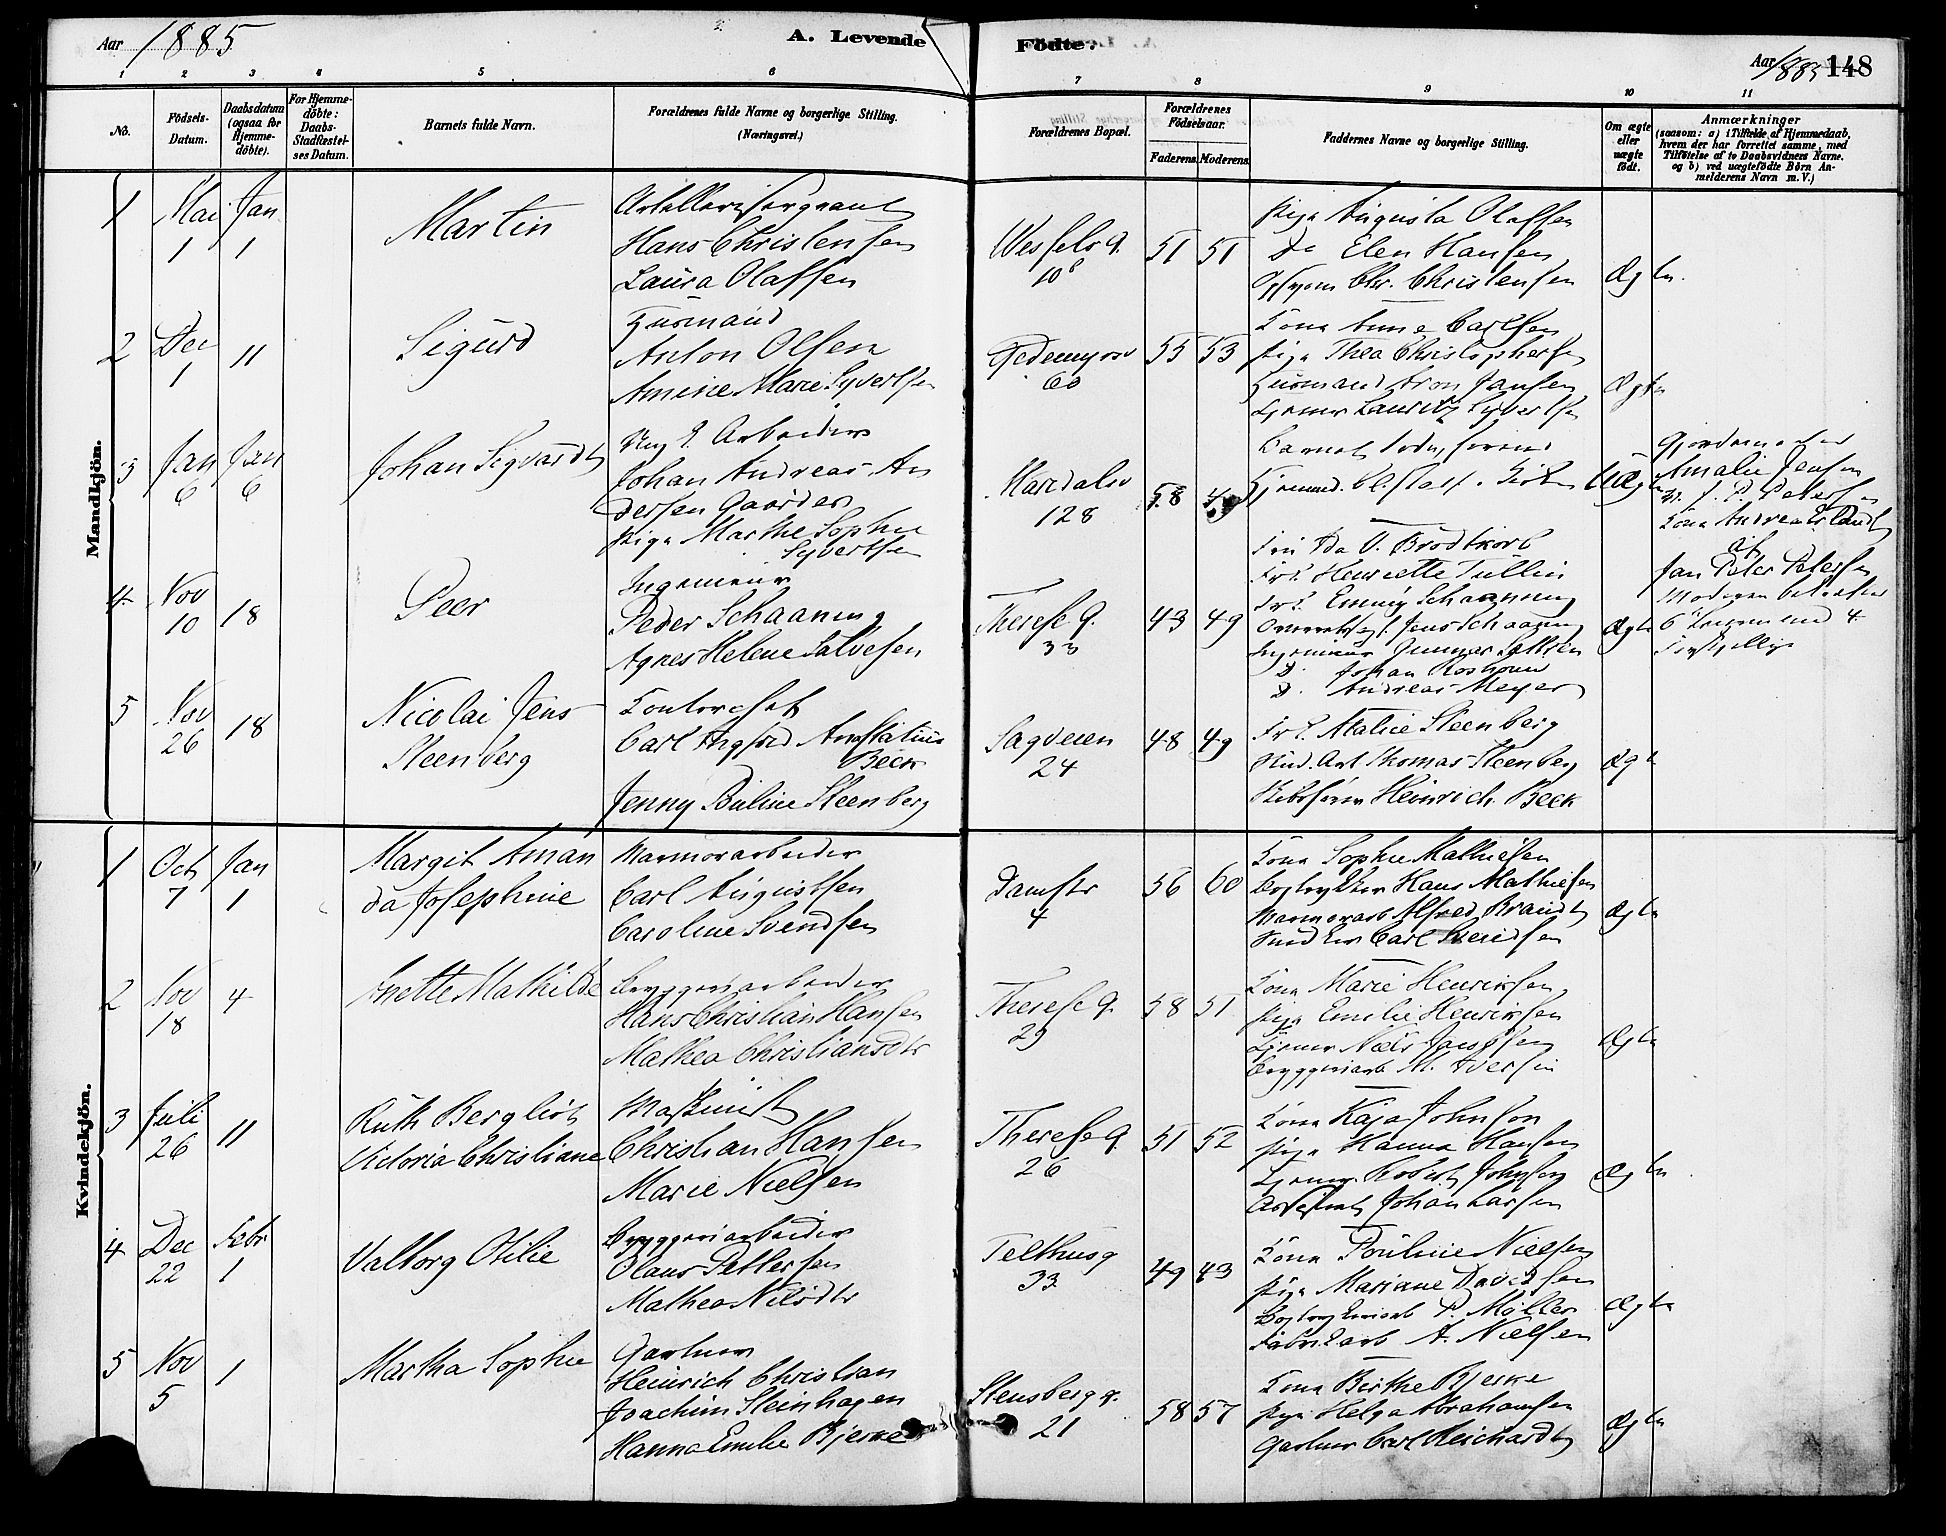 Aar 1885
A. Levende Födte.
Aar 1885 148
1 2 3 4 5 6 7 8 9 10 11
No.
Födsels-Datum.
Daabsdatum (ogsaa for Hjemme-döbte).
For Hjemme-döbte: Daabs-Stadfæstel-ses Datum.
Barnets fulde Navn.
Forældrenes fulde Navne og borgerlige Stilling. (Næringsvei.)
Forældrenes Bopæl.
Forældrenes Födselsaar.
Faderens. Moderens.
Faddernes Navne og borgerlige Stilling.
Om ægte eller uægte födt.
Anmærkninger
(saasom: a) i Tilfælde af Hjemmedaab, hvem der har forrettet samme, med Tilföielse af to Daabsvidners Navne. og b) ved uægtefödte Börn An-melderens Navn m. V.)
Mandkjön.
1 Mai 1 Jan 1
Martin
Hans Christensen
Laura Olassen
Wessels g. 10b
51 51
Pige Augusta Olassen
Do Elen Hansen
Chr. Christensen
Ægte
2 Dec 1 11
Sigurd
Husmand
Anton Olsen
Amine Marie Syvertsen
60
55 53
Kona Anne Carlsen
Pige Thea Christophersen
Husmand Aron Jansen
Lauritz Syvertsen
Ægte
3 Jan 6 Jan 6
Johan Sigvardt
Ung. Arbeider
Johan Andreas An
dersen Gaarder
Pige Marthe Sophie
Syvertsen
Maridalsv 128
58
Barnet
Uægte
Amalie Jensen
P. Petersen
Kona
Jan Peter Petersen
4 Nov 10 18
Peer
Ingenieur
Peder Schaaning
Agnes Helene Salvesen
Therese g. 33
43 49
Fru Ida V. Brodtkorb
Frk. Henriette Tullin
Frk. Emmy Schaanning
Jens Schaaning
Ingenieur Gunnar
D. Johan
D. Andreas Meyer
Ægte
5 Nov 26 18
Nicolai Jens
Steenberg
Carl Ingford Anastatius
Beck
Jenny Pauline Steenberg
Sagveien 24
48 49
Frk. Natalie Steenberg
Stud. Art Thomas Steenberg
Skibsförer Heinrich Beck
Ægte
Kvindekjön.
1 Oct 7 Jan 1
Margit Aman
da Josephine
Marmorarbeider
Carl Augustsen
Caroline Svendsen
Damstr 4
56 60
Kona Sophie Mathiesen
Bogtrykker Hans Mathiesen
Marmorarb Alfred Brandt
Carl Svendsen
Ægte
2 Nov 18 4
Anette Mathilde
Bryggeriarbeider
Hans Christian Hansen
Mathea Christiansdtr
Therese g. 29
58 51
Kona Marie Henriksen
Pige Emilie Henriksen
Bryggeriarb M. Iversen
Ægte
3 Juli 26 11
Ruth Bergliot
Victoria Christiane
Maskinist
Christian Hansen
Marie Nielsen
Therese g. 26
51 52
Kona Kaja Johnson
Pige Hanna Hansen
Robert Johnsen
Johan Larsen
Ægte
4 Dec 22 Febr 1
Valborg Otilie
Bryggeriarbeider
Olaus Pettersen
Mathea Nilsdtr
Telthusg 33
49 43
Kona Pauline Nielsen
Pige Mariane Davidsen
P. Møller
Fabrikarb A. Nielsen
Ægte
5 Nov 5 1
Martha Sophie
Gartner
Heinrich Christian
Joachim Steinhagen
Hanna Emilie Bjerke
Stensberg g. 21
58 57
Kona Birthe Bjerke
Pige Helga Abrahamsen
Gartner Carl Reichardt
Ægte